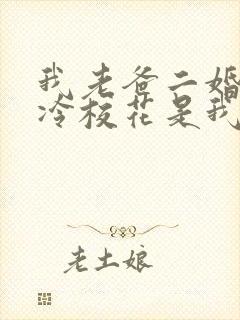 我老爸二婚
冷校花是我
老土娘